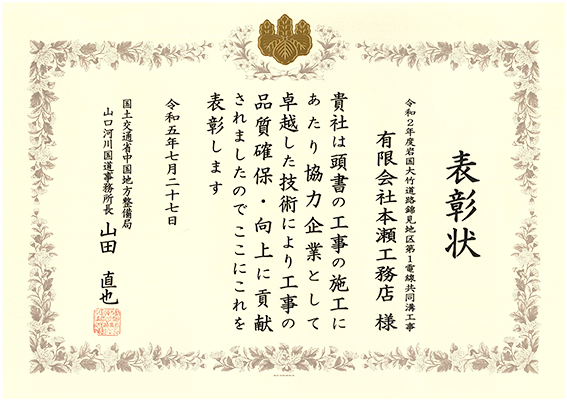 表彰状
令和２年度岩国大竹道路錦見地区第１電線共同溝工事
有限会社本瀬工務店 様
貴社は頭書の工事の施工に
あたり協力企業として
卓越した技術により工事の
品質確保・向上に貢献
されましたのでここにこれを
表彰します
令和五年七月二十七日
国土交通省中国地方整備局
山口河川国道事務所長 山田 直也